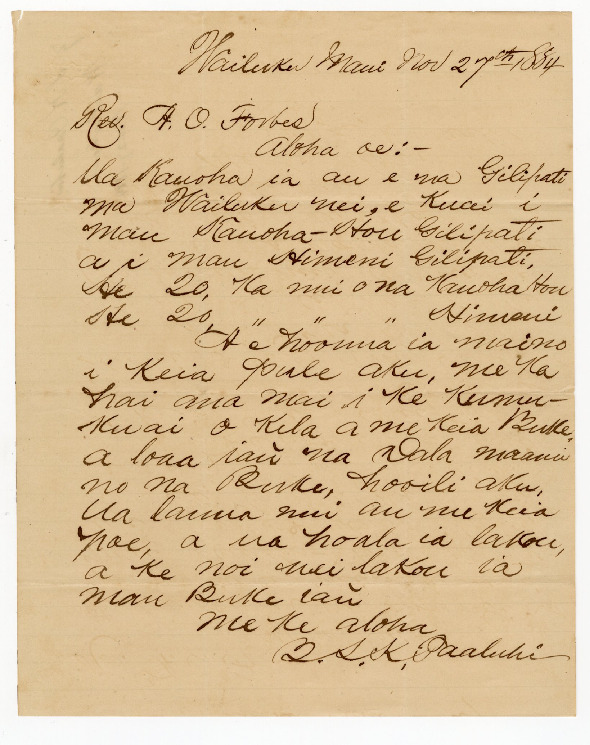 Wailuku Maui Nov 27th 1884
Rev. A. O. Forbes
Aloha oe:-
Ua Kauoha ia au e na Gilipati
ma Wailuku nei, e Kuai i
mau Kauoha-Hou Gilipati
a i mau Himeni Gilipati,
He 20, Ka nui o na Kauoha Hou
He 20, " " " Himeni
A e hoouna ia mai no
i Keia pule aku, me Ka
hai ana mai i Ke Kumu-
Kuai o Kela a me Keia Buke,
a loaa iau na Dala
no na Buke, hooili aku,
Ua launa nui au me Keia
poe, a ua hoala ia lakou,
a Ke noi nei lakou ia
mau Buke iau
me Ke aloha
B. S. K. Paaluhi